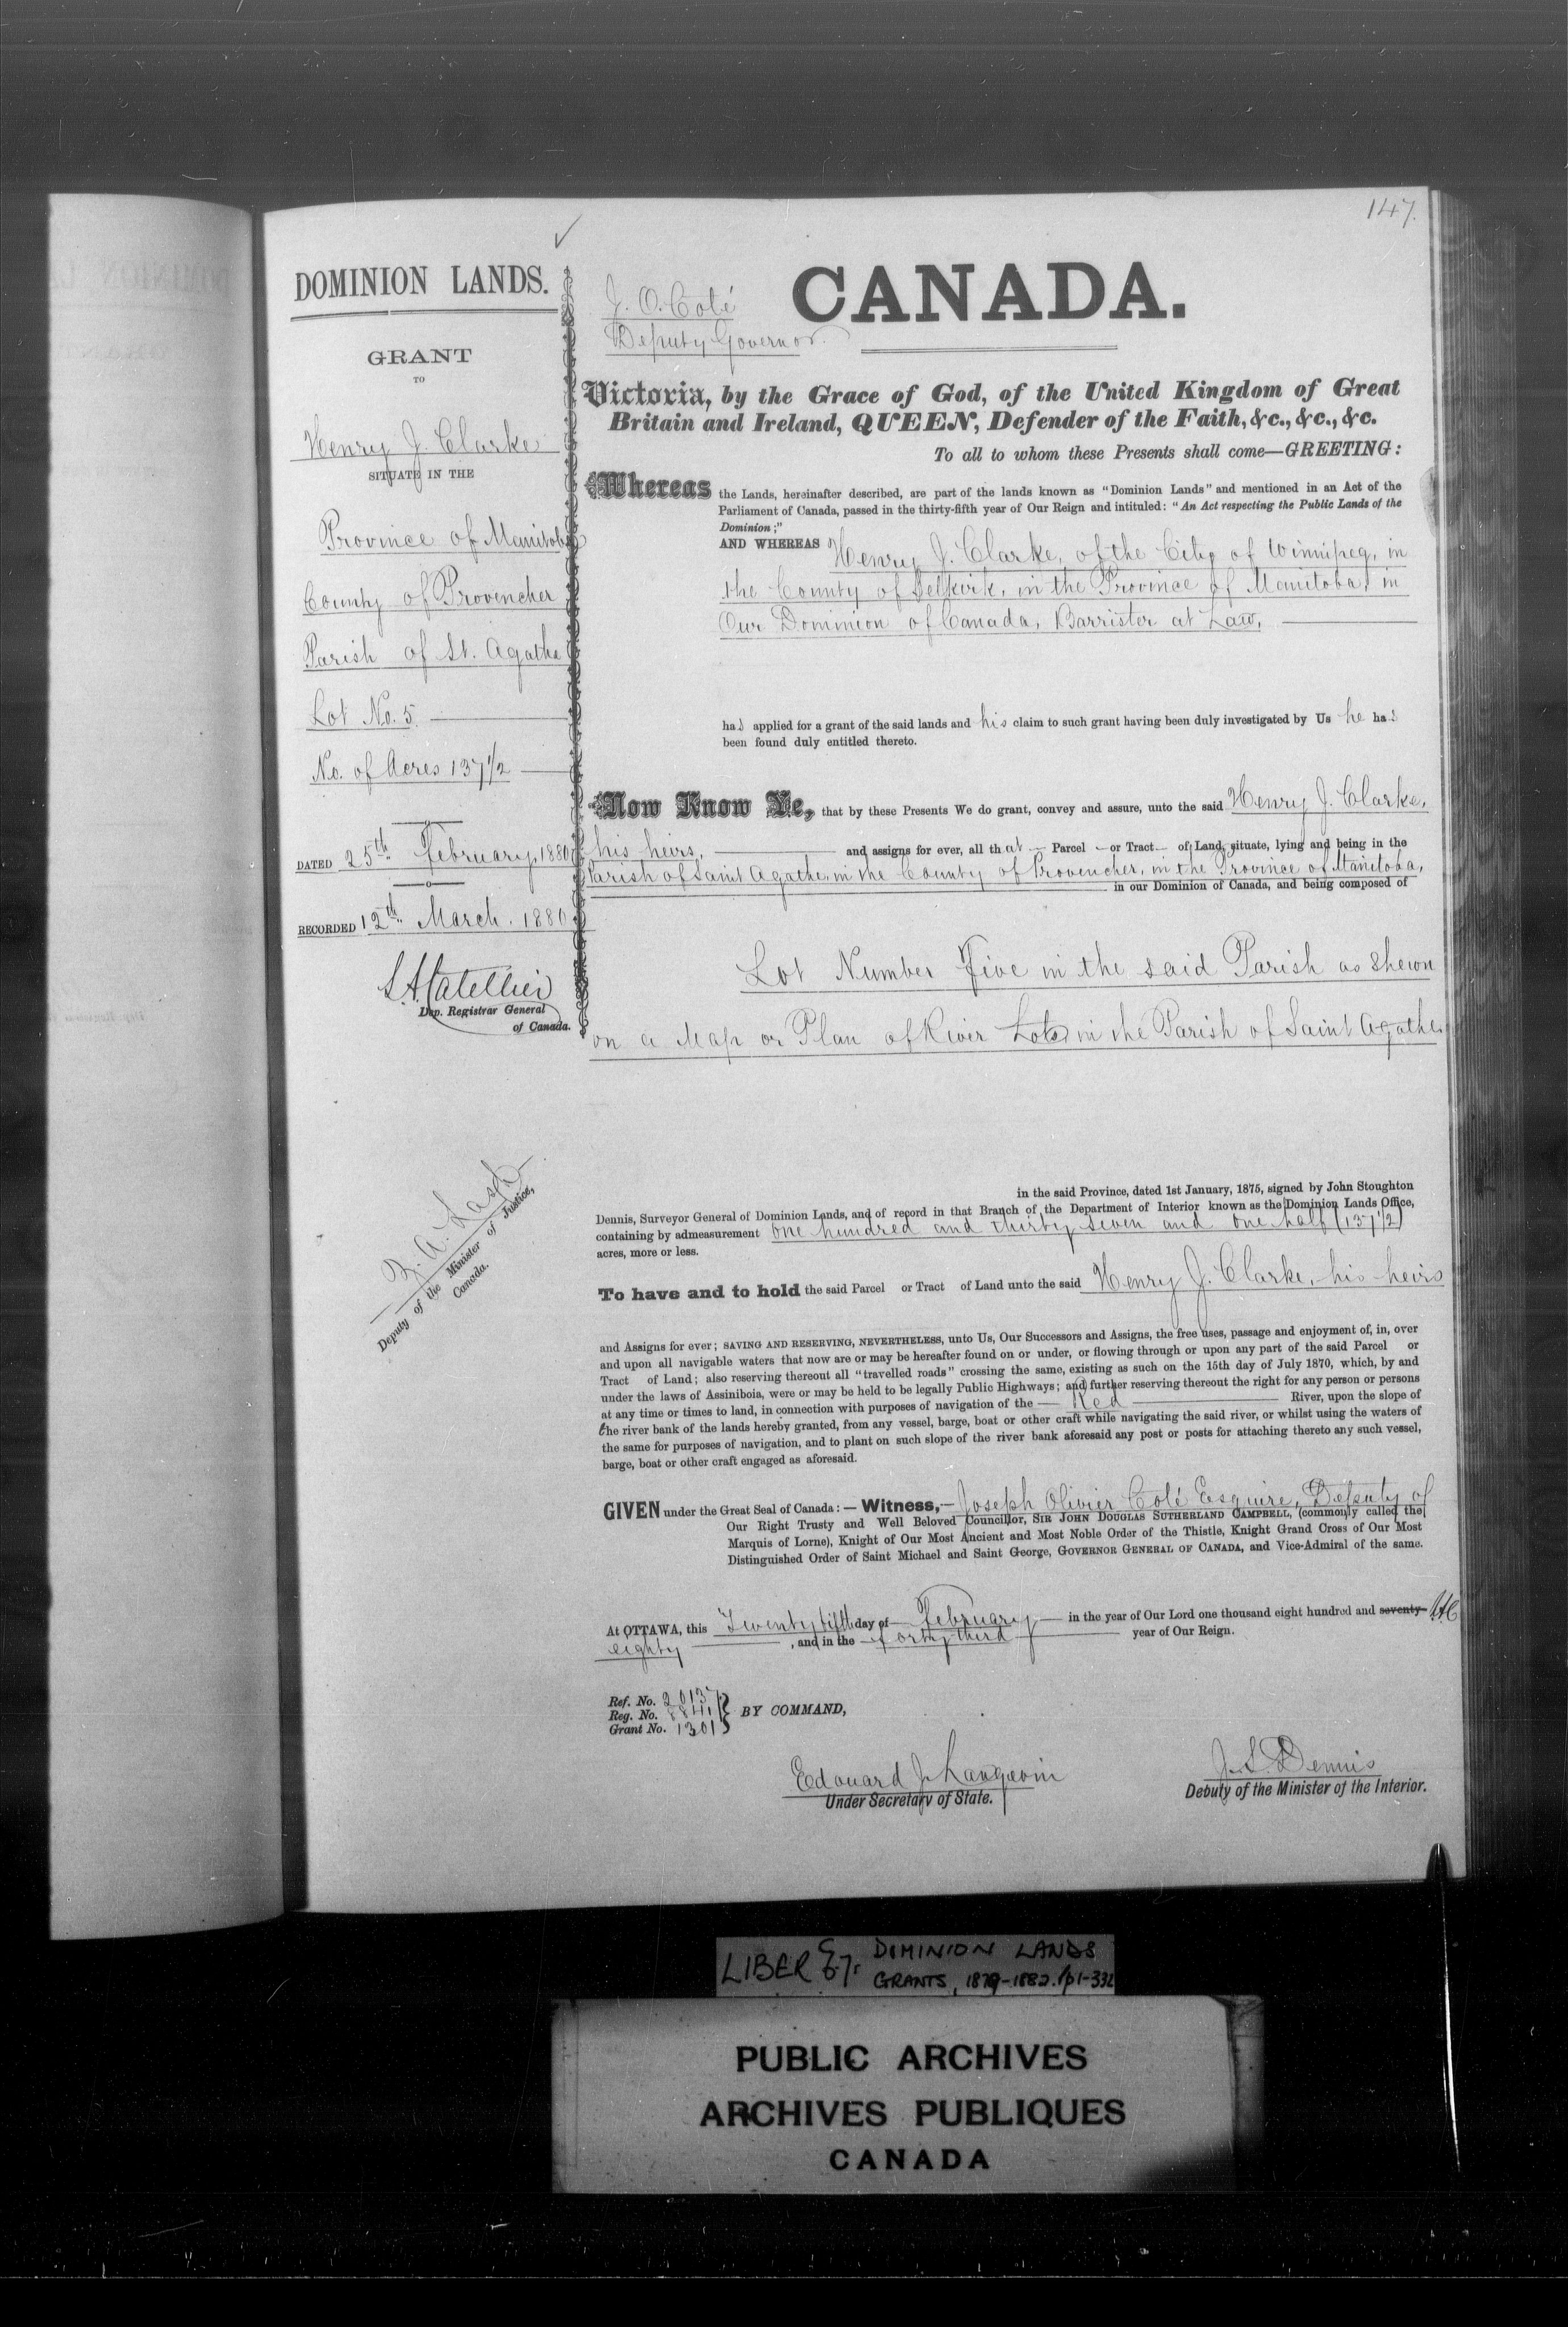 147.
DOMINION LANDS.
GRANT
TO
Henry J. Clarke
SITUATE IN THE
Province of Manitoba
County of Provencher
Parish of St. Agathe
Lot No. 5.
No. of Acres 137 1/2
DATED 25th February, 1880
RECORDED 12th March. 1880
L.A. Catellier
Dep. Registrar General
of Canada.
Z. A. Lash
Deputy of the Minister of Justice,
Canada.
J. O. Coté
Deputy Governor.
CANADA.
Victoria, by the Grace of God, of the United Kingdom of Great
Britain and Ireland, QUEEN, Defender of the Faith, &c., &c., &c.
To all to whom these Presents shall come—GREETING:
Whereas the Lands, hereinafter described, are part of the lands known as "Dominion Lands" and mentioned in an Act of the
Parliament of Canada, passed in the thirty-fifth year of Our Reign and intituled: "An Act respecting the Public Lands of the
Dominion;"
AND WHEREAS Henry J. Clarke, of the City of Winnipeg, in
the County of Selkirk, in the Province of Manitoba, in
Our Dominion of Canada, Barrister at Law,
has applied for a grant of the said lands and his claim to such grant having been duly investigated by Us he has
been found duly entitled thereto.
Now Know Ye, that by these Presents We do grant, convey and assure, unto the said Henry J. Clarke,
his heirs, and assigns for ever, all that Parcel or Tract of Land, situate, lying and being in the
Parish of Saint Agathe, in the County of Provencher, in the Province of Manitoba,
in our Dominion of Canada, and being composed of
Lot Number Five in the said Parish as shewn
on a Map or Plan of River Lots in the Parish of Saint Agathe
in the said Province, dated 1st January, 1875, signed by John Stoughton
Dennis, Surveyor General of Dominion Lands, and of record in that Branch of the Department of Interior known as the Dominion Lands Office,
containing by admeasurement one hundred and thirty seven and one half (137 1/2)
acres, more or less.
To have and to hold the said Parcel or Tract of Land unto the said Henry J. Clarke, his heirs
and Assigns for ever; SAVING AND RESERVING, NEVERTHELESS, unto Us, Our Successors and Assigns, the free uses, passage and enjoyment of, in, over
and upon all navigable waters that now are or may be hereafter found on or under, or flowing through or upon any part of the said Parcel or
Tract of Land; also reserving thereout all "travelled roads" crossing the same, existing as such on the 15th day of July 1870, which, by and
under the laws of Assiniboia, were or may be held to be legally Public Highways; and further reserving thereout the right for any person or persons
at any time or times to land, in connection with purposes of navigation of the Red River, upon the slope of
the river bank of the lands hereby granted, from any vessel, barge, boat or other craft while navigating the said river, or whilst using the waters of
the same for purposes of navigation, and to plant on such slope of the river bank aforesaid any post or posts for attaching thereto any such vessel,
barge, boat or other craft engaged as aforesaid.
GIVEN under the Great Seal of Canada:—Witness,—Joseph Olivier Coté Esquire, Deputy of
Our Right Trusty and Well Beloved Councillor, SIR JOHN DOUGLAS SUTHERLAND CAMPBELL, (commonly called the
Marquis of Lorne), Knight of Our Most Ancient and Most Noble Order of the Thistle, Knight Grand Cross of Our Most
Distinguished Order of Saint Michael and Saint George, GOVERNOR GENERAL OF CANADA, and Vice-Admiral of the same.
At OTTAWA, this Twenty fifth day of February in the year of Our Lord one thousand eight hundred and seventy
eighty, and in the forty third year of Our Reign.
Ref. No. 20137
Reg. No. 8841
Grant No. 1301
BY COMMAND,
Edouard J. Langevin
Under Secretary of State.
J. S. Dennis
Deputy of the Minister of the Interior.
LIBER DOMINION LANDS
GRANTS, 1879-1882. pp1-332
PUBLIC ARCHIVES
ARCHIVES PUBLIQUES
CANADA